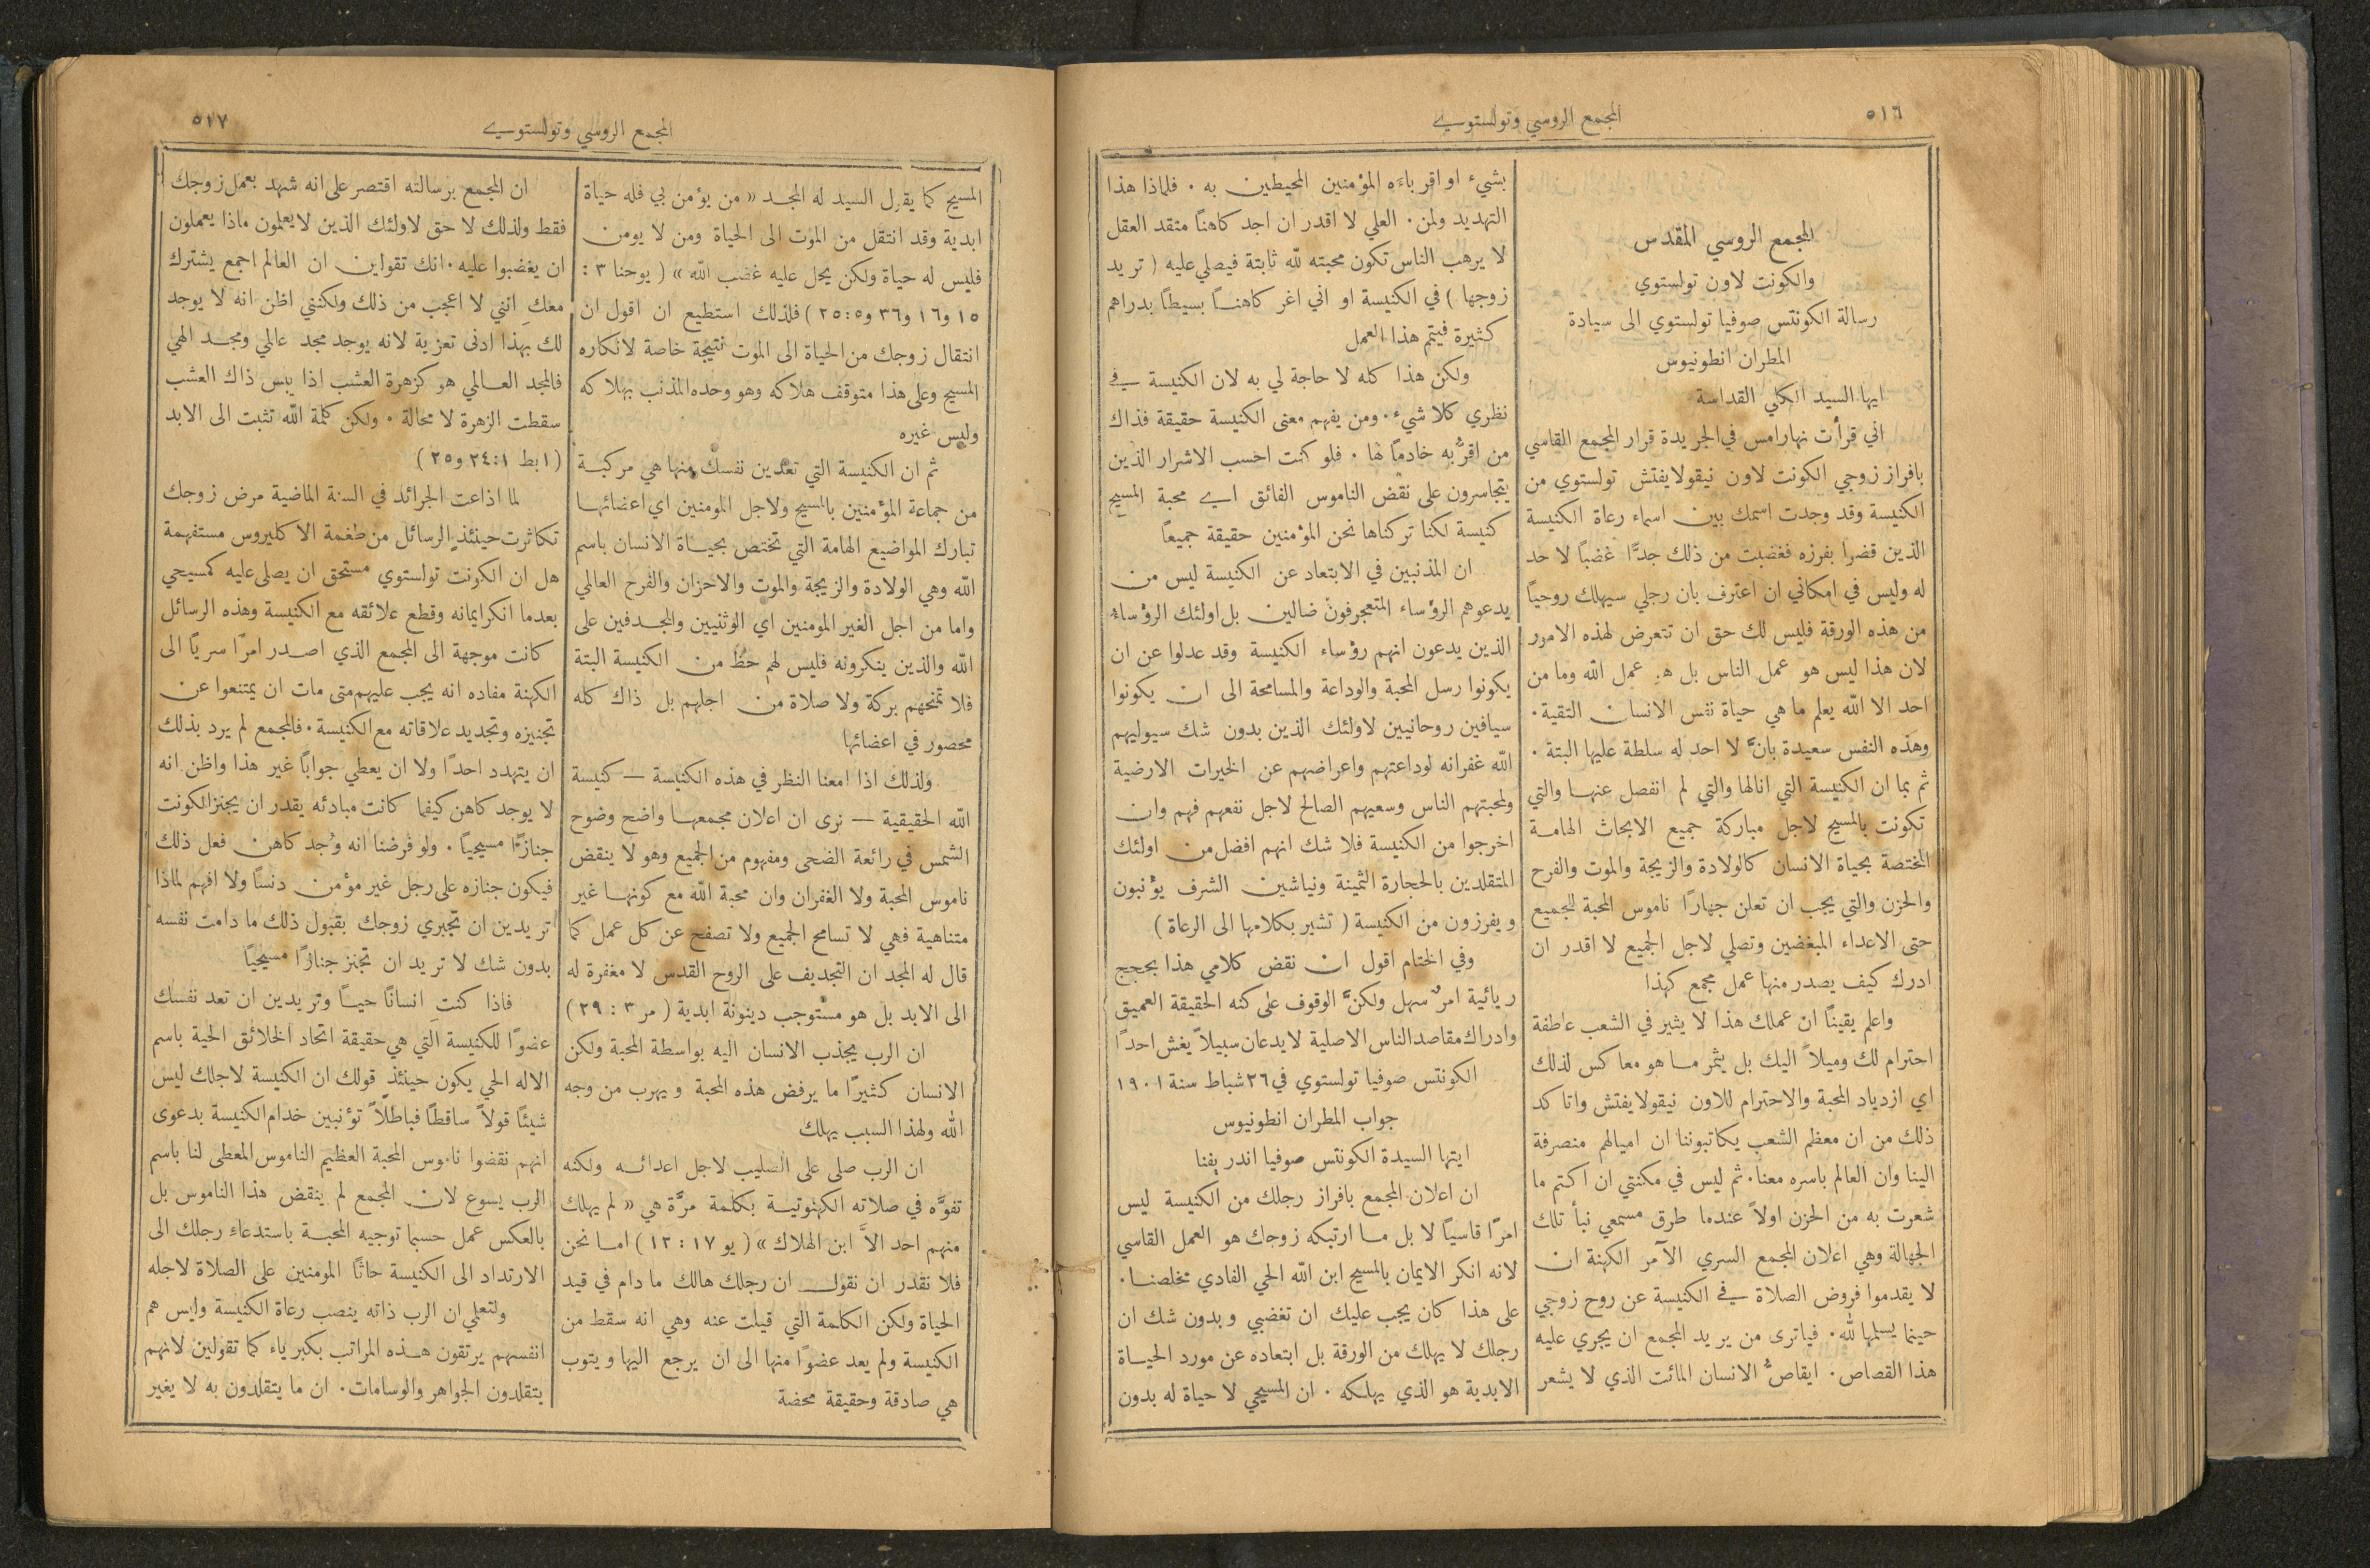 ٥١٦
المجمع الروسي وتولستوي
المجمع الروسي المقدس
والكونت لاون تولستوي
رسالة الكونتس صوفيا تولستوي الى سيادة
المطران انطونيوس
ايها السيد الكلي القداسة
اني قرأت نهار امس في الجريدة قرار المجمع القاسي
بافراز زوجي الكونت لاون نيقولايفتش تولستوي من
الكنيسة وقد وجدت اسمك بين اسماء رعاة الكنيسة
الذين قضوا بفرزه فغضبت من ذلك جدًّا غضبًا لا حد
له وليس في امكاني ان اعترف بان رجلي سيهلك روحيًا
من هذه الورقة فليس لك حق ان تتعرض لهذه الامور
لان هذا ليس هو عمل الناس بل هو عمل الله وما من
احد الا الله يعلم ما هي حياة نفس الانسان التقية.
وهذه النفس سعيدة بانَّ لا احد له سلطة عليها البتة.
ثم بما ان الكنيسة التي انا لها والتي لم انفصل عنها والتي
تكونت بالمسيح لاجل مباركة جميع الابحاث الهامة
المختصة بحياة الانسان كالولادة والزيجة والموت والفرح
والحزن والتي يجب ان تعلن جهارًا ناموس المحبة للجميع
حتى الاعداء المبغضين وتصلي لاجل الجميع لا اقدر ان
ادرك كيف يصدر منها عمل مجمع كهذا
واعلم يقينًا ان عملك هذا لا يثير في الشعب عاطفة
احترام لك وميلاً اليك بل يثمر ما هو معاكس لذلك
اي ازدياد المحبة والاحترام للاون نيقولايفتش واتاكد
ذلك من ان معظم الشعب يكاتبوننا ان اميالهم منصرفة
الينا وان العالم باسره معنا. ثم ليس في مكنتي ان اكتم ما
شعرت به من الحزن اولاً عندما طرق مسمعي نبأ تلك
الجهالة وهي اعلان المجمع السري الآمر الكهنة ان
لا يقدموا فروض الصلاة في الكنيسة عن روح زوجي
حينما يسلمها لله. فيا ترى من يريد المجمع ان يجري عليه
هذا القصاص. ايقاصُّ الانسان المائت الذي لا يشعر
بشيء او اقرباءَه المؤمنين المحيطين به. فلماذا هذا
التهديد ولمن. العلي لا اقدر ان اجد كاهنًا متقد العقل
لا يرهب الناس تكون محبته لله ثابتة فيصلي عليه (تريد
زوجها) في الكنيسة او اني اغر كاهنًا بسيطًا بدراهم
كثيرة فيتم هذا العمل
ولكن هذا كله لا حاجة لي به لان الكنيسة في
نظري كلا شيء. ومن يفهم معنى الكنيسة حقيقة فذاك
من اقرُّ به خادمًا لها. فلو كنت احسب الاشرار الذين
يتجاسرون على نقض الناموس الفائق اي محبة المسيح
كنيسة لكنا تركناها نحن المؤمنين حقيقة جميعًا
ان المذنبين في الابتعاد عن الكنيسة ليس من
يدعوهم الرؤساء المتعجرفون ضالين بل اولئك الرؤساء
الذين يدعون انهم رؤساء الكنيسة وقد عدلوا عن ان
يكونوا رسل المحبة والوداعة والمسامحة الى ان يكونوا
سيافين روحانيين لاولئك الذين بدون شك سيوليهم
الله غفرانه لوداعتهم واعراضهم عن الخيرات الارضية
ولمحبتهم الناس وسعيهم الصالح لاجل نفعهم فهم وان
اخرجوا من الكنيسة فلا شك انهم افضل من اولئك
المتقلدين بالحجارة الثمينة ونياشين الشرف يؤنبون
ويفرزون من الكنيسة (تشير بكلامها الى الرعاة)
وفي الختام اقول ان نقض كلامي هذا بحجج
ريائية امرٌ سهل ولكنَّ الوقوف على كنه الحقيقة العميق
وادراك مقاصد الناس الاصلية لا يدعان سبيلاً يغش احدًا
الكونتس صوفيا تولستوي في ٢٦ شباط سنة ١٩٠١
جواب المطران انطونيوس
ايتها السيدة الكونتس صوفيا اندريفنا
ان اعلان المجمع بافراز رجلك من الكنيسة ليس
امرًا قاسيًا لا بل ما ارتبكه زوجك هو العمل القاسي
لانه انكر الايمان بالمسيح ابن الله الحي الفادي مخلصنا.
على هذا كان يجب عليك ان تغضبي وبدون شك ان
رجلك لا يهلك من الورقة بل ابتعاده عن مورد الحياة
الابدية هو الذي يهلكه. ان المسيحي لا حياة له بدون
المجمع الروسي وتولستوي
٥١٧
المسيح كما يقول السيد له المجد «من يؤمن بي فله حياة
ابدية وقد انتقل من الموت الى الحياة ومن لا يومن
فليس له حياة ولكن يحل عليه غضب الله» (يوحنا ٣:
١٥ و١٦ و٣٦ و٥:٢٥) فلذلك استطيع ان اقول ان
انتقال زوجك من الحياة الى الموت نتيجة خاصة لانكاره
المسيح وعلى هذا متوقف هلاكه وهو وحده المذنب بهلاكه
وليس غيره
ثم ان الكنيسة التي تعدين نفسك منها هي مركبة
من جماعة المؤمنين بالمسيح ولاجل المومنين اي اعضائها
تبارك المواضيع الهامة التي تختص بحياة الانسان باسم
الله وهي الولادة والزيجة والموت والاحزان والفرح العالي
واما من اجل الغير المومنين اي الوثنيين والمجدفين على
الله والذين ينكرونه فليس لهم حظ من الكنيسة البتة
فلا تمنحهم بركة ولا صلاة من اجلهم بل ذاك كله
محصور في اعضائها
ولذلك اذا امعنا النظر في هذه الكنيسة — كنيسة
الله الحقيقية — نرى ان اعلان مجمعها واضح وضوح
الشمس في رائعة الضحى ومفهوم من الجميع وهو لا ينقض
ناموس المحبة ولا الغفران وان محبة الله مع كونها غير
متناهية فهي لا تسامح الجميع ولا تصفح عن كل عمل كما
قال له المجد ان التجديف على الروح القدس لا مغفرة له
الى الابد بل هو مستوجب دينونة ابدية (مر ٣: ٢٩)
ان الرب يجذب الانسان اليه بواسطة المحبة ولكن
الانسان كثيرًا ما يرفض هذه المحبة ويهرب من وجه
الله ولهذا السبب يهلك
ان الرب صلى على الصليب لاجل اعدائه ولكنه
تفوَّه في صلاته الكهنوتية بكلمة مرَّة هي «لم يهلك
منهم احد الاَّ ابن الهلاك» (يو ١٧: ١٢) اما نحن
فلا نقدر ان نقول ان رجلك هالك ما دام في قيد
الحياة ولكن الكلمة التي قيلت عنه وهي انه سقط من
الكنيسة ولم يعد عضوًا منها الى ان يرجع اليها ويتوب
هي صادقة وحقيقة محضة
ان المجمع برسالته اقتصر على انه شهد بعمل زوجك
فقط ولذلك لا حق لاولئك الذين لا يعلمون ماذا يعملون
ان يغضبوا عليه. انك تقولين ان العالم اجمع يشترك
معكِ انني لا اعجب من ذلك ولكنني اظن انه لا يوجد
لك بهذا ادنى تعزية لانه يوجد مجد عالمي ومجد الهي
فالمجد العالمي هو كزهرة العشب اذا يبس ذاك العشب
سقطت الزهرة لا محالة. ولكن كلمة الله تثبت الى الابد
(١ بط ١:٢٤ و٢٥)
لما اذاعت الجرائد في السنة الماضية مرض زوجك
تكاثرت حينئذٍ الرسائل من طغمة الاكليروس مستفهمة
هل ان الكونت تولستوي مستحق ان يصلى عليه كمسيحي
بعدما انكر ايمانه وقطع علائقه مع الكنيسة وهذه الرسائل
كانت موجهة الى المجمع الذي اصدر امرًا سريًا الى
الكهنة مفاده انه يجب عليهم متى مات ان يمتنعوا عن
تجنيزه وتجديد علاقاته مع الكنيسة. فالمجمع لم يرد بذلك
ان يتهدد احدًا ولا ان يعطي جوابًا غير هذا واظن انه
لا يوجد كاهن كيفما كانت مبادئه يقدر ان يجنز الكونت
جنازًا مسيحيًا. ولو فرضنا انه وُجد كاهن فعل ذلك
فيكون جنازه على رجل غير مؤمن دنسًا ولا افهم لماذا
تريدين ان تجبري زوجك بقبول ذلك ما دامت نفسه
بدون شك لا تريد ان تجنز جنازًا مسيحيًا
فاذا كنتِ انسانًا حيًا وتريدين ان تعد نفسك
عضوًا للكنيسة التي هي حقيقة اتحاد الخلائق الحية باسم
الاله الحي يكون حينئذٍ قولك ان الكنيسة لاجلك ليس
شيئًا قولاً ساقطًا فباطلاً تؤنبين خدام الكنيسة بدعوى
انهم نقضوا ناموس المحبة العظيم الناموس المعطى لنا باسم
الرب يسوع لان المجمع لم ينقض هذا الناموس بل
بالعكس عمل حسبما توجيه المحبة باستدعاء رجلك الى
الارتداد الى الكنيسة حاثًا المومنين على الصلاة لاجله
ولتعلمي ان الرب ذاته ينصب رعاة الكنيسة وليس هم
انفسهم يرتقون هذه المراتب بكبرياء كما تقولين لانهم
يتقلدون الجواهر والوسامات. ان ما يتقلدون به لا يغير